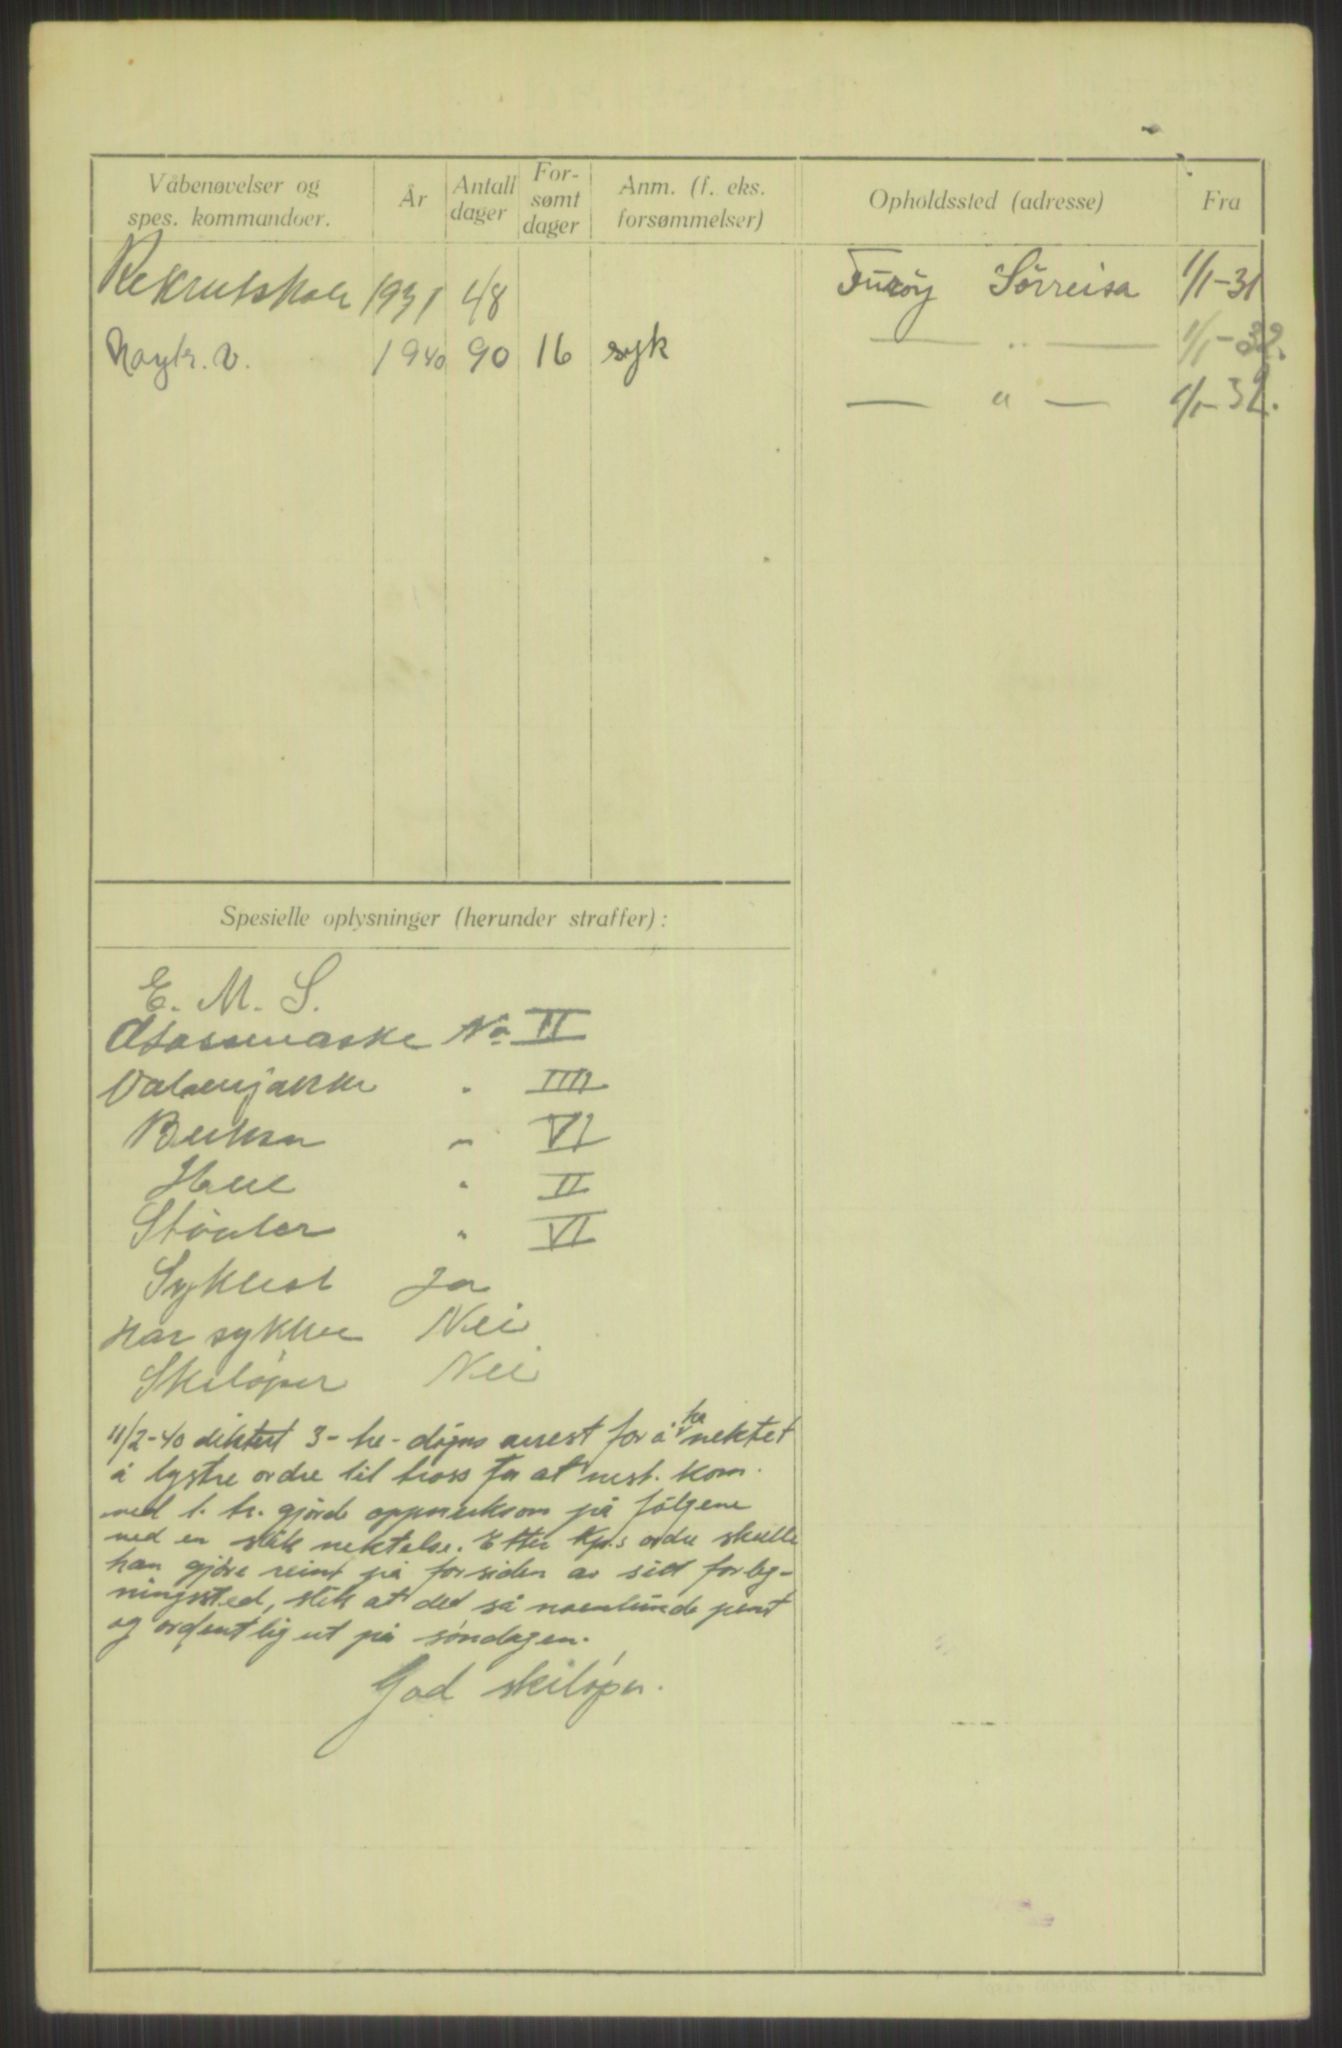 Våbenøvelser og spes. kommandoer. År Antall dager For- sømt dager Anm. (f. eks. forsømmelser) Opholdssted (adresse) Fra
Rekrutskole 1931 48 Furøy Sörreisa 1/1-31
Nøytr. v. 1940 90 16 syk — " — 1/1-32.
— " — 1/1-32.
Spesielle oplysninger (herunder straffer):
E. M. S.
Gassmaske No II
Våbenjakke " IIII
Bukser " VI
Hue " II
Støvler " VI
Syklist Ja
Har sykkel Nei
Skiløper Nei
11/2-40 diktert 3-tre-døgns arrest for å ha nektet
å lystre ordre til tross for at nest. kom.
med l. tr. gjorde oppmerksom på følgene
ved en slik nektelse. Etter Kp.s ordre skulle
han gjøre reint på forsiden av sitt forleg-
ningssted, slik at det så noenlunde pent
og ordentlig ut på søndagen.
God skiløper.